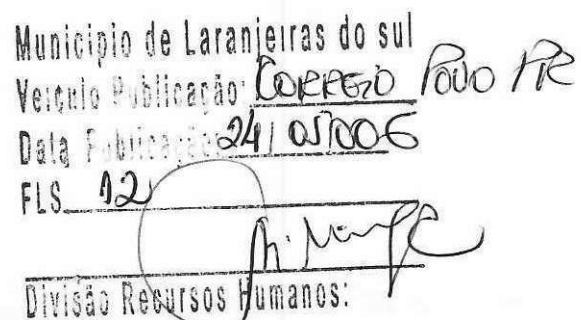 Municipio de Laranjeiras do sul
Veiculo Publicação: CORREIO POVO PR
Data Publicação: 24/05/006
FLS. 12
Divisão Recursos Humanos: